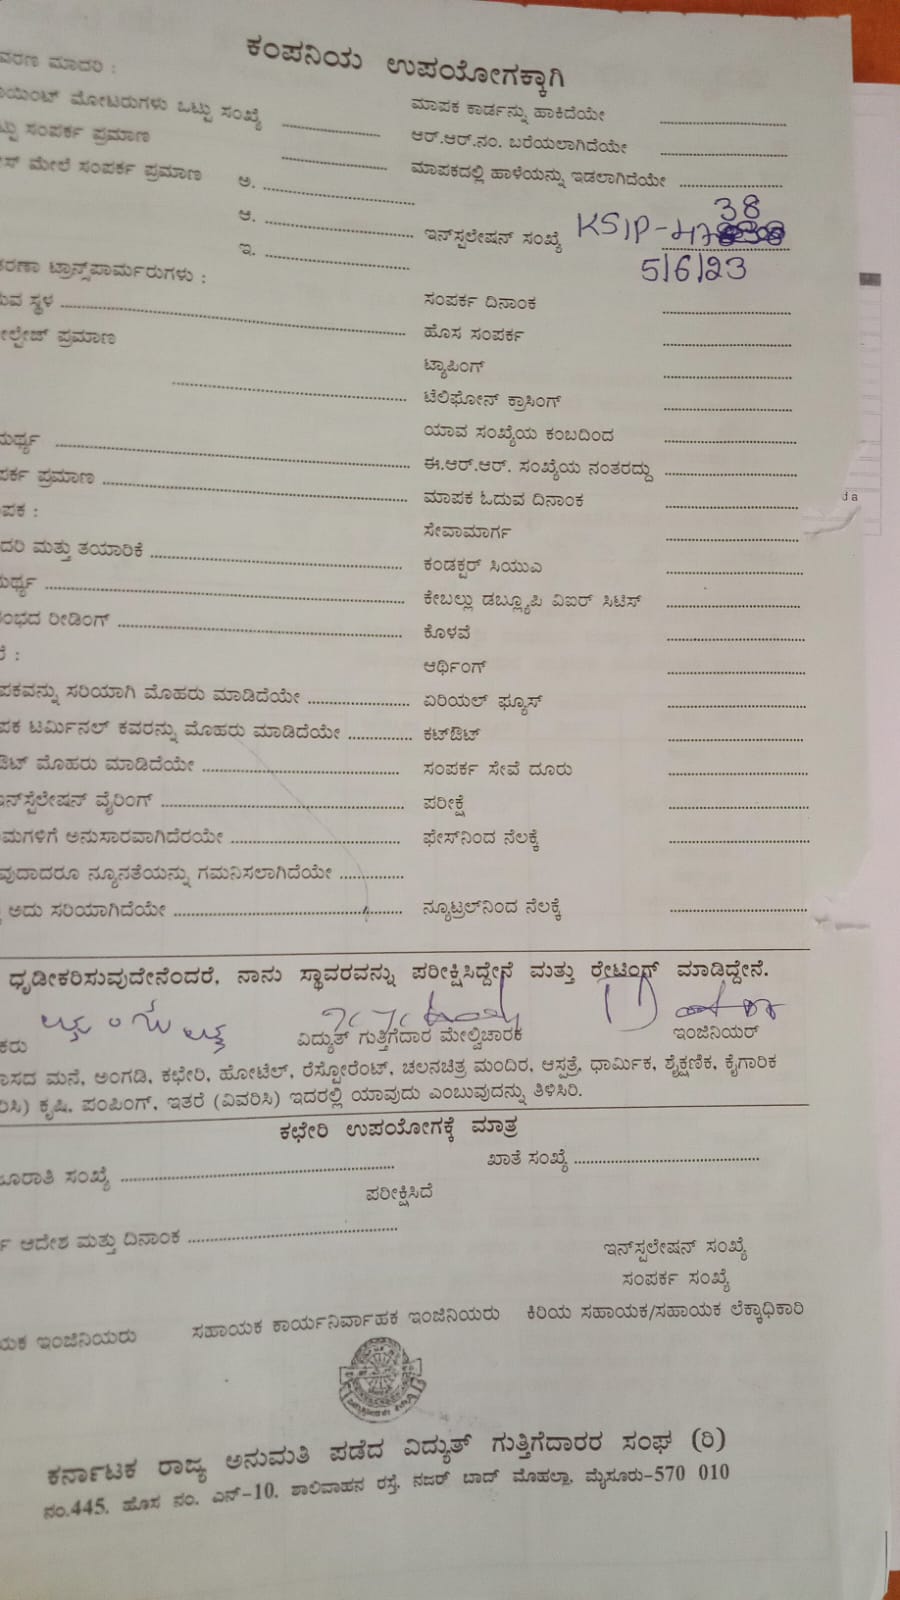 ಕಂಪನಿಯ ಉಪಯೋಗಕ್ಕಾಗಿ
ವರಣ ಮಾದರಿ :
ಯಿಂಟ್ ಮೋಟರುಗಳು ಒಟ್ಟು ಸಂಖ್ಯೆ ಮಾಪಕ ಕಾರ್ಡನ್ನು ಹಾಕಿದೆಯೇ
ಟ್ಟು ಸಂಪರ್ಕ ಪ್ರಮಾಣ ಆರ್.ಆರ್.ನಂ. ಬರೆಯಲಾಗಿದೆಯೇ
ಸ್ ಮೇಲೆ ಸಂಪರ್ಕ ಪ್ರಮಾಣ ಅ. ಮಾಪಕದಲ್ಲಿ ಹಾಳೆಯನ್ನು ಇಡಲಾಗಿದೆಯೇ
38
ಆ. ಇನ್‌ಸ್ಪಲೇಷನ್ ಸಂಖ್ಯೆ KSIP-47
ಇ. 5/6/23
ಕರಣಾ ಟ್ರಾನ್ಸ್‌ಪಾರ್ಮರುಗಳು :
ಸಂಪರ್ಕ ದಿನಾಂಕ
ುವ ಸ್ಥಳ ಹೊಸ ಸಂಪರ್ಕ
ೋಲ್ಟೇಜ್ ಪ್ರಮಾಣ ಟ್ಯಾಪಿಂಗ್
ಟೆಲಿಫೋನ್ ಕ್ರಾಸಿಂಗ್
ಯಾವ ಸಂಖ್ಯೆಯ ಕಂಬದಿಂದ
ಮರ್ಥ್ಯ ಈ.ಆರ್.ಆರ್. ಸಂಖ್ಯೆಯ ನಂತರದ್ದು
ಪರ್ಕ ಪ್ರಮಾಣ ಮಾಪಕ ಓದುವ ದಿನಾಂಕ
ಪಕ : ಸೇವಾಮಾರ್ಗ
ದರಿ ಮತ್ತು ತಯಾರಿಕೆ ಕಂಡಕ್ಟರ್ ಸಿಯುಎ
ಮರ್ಥ್ಯ ಕೇಬಲ್ಲು ಡಬ್ಲ್ಯೂಪಿ ವಿಐರ್ ಸಿಟಿಸ್
ಂಭದ ರೀಡಿಂಗ್ ಕೊಳವೆ
ಆರ್ಥಿಂಗ್
ಪಕವನ್ನು ಸರಿಯಾಗಿ ಮೊಹರು ಮಾಡಿದೆಯೇ ಏರಿಯಲ್ ಫ್ಯೂಸ್
ಪಕ ಟರ್ಮಿನಲ್ ಕವರನ್ನು ಮೊಹರು ಮಾಡಿದೆಯೇ ಕಟ್‌ಔಟ್
ಔಟ್ ಮೊಹರು ಮಾಡಿದೆಯೇ ಸಂಪರ್ಕ ಸೇವೆ ದೂರು
ಇನ್‌ಸ್ಪೆಲೇಷನ್ ವೈರಿಂಗ್ ಪರೀಕ್ಷೆ
ಮಗಳಿಗೆ ಅನುಸಾರವಾಗಿದೆರಯೇ ಫೇಸ್‌ನಿಂದ ನೆಲಕ್ಕೆ
ವುದಾದರೂ ನ್ಯೂನತೆಯನ್ನು ಗಮನಿಸಲಾಗಿದೆಯೇ
ಅದು ಸರಿಯಾಗಿದೆಯೇ ನ್ಯೂಟ್ರಲ್‌ನಿಂದ ನೆಲಕ್ಕೆ
ಧೃಡೀಕರಿಸುವುದೇನೆಂದರೆ, ನಾನು ಸ್ಥಾವರವನ್ನು ಪರೀಕ್ಷಿಸಿದ್ದೇನೆ ಮತ್ತು ರೇಟಿಂಗ್ ಮಾಡಿದ್ದೇನೆ.
ಕರು ವಿದ್ಯುತ್ ಗುತ್ತಿಗೆದಾರ ಮೇಲ್ವಿಚಾರಕ ಇಂಜಿನಿಯರ್
ಾಸದ ಮನೆ, ಅಂಗಡಿ, ಕಛೇರಿ, ಹೋಟೆಲ್, ರೆಸ್ಟೋರೆಂಟ್, ಚಲನಚಿತ್ರ ಮಂದಿರ, ಆಸ್ಪತ್ರೆ, ಧಾರ್ಮಿಕ, ಶೈಕ್ಷಣಿಕ, ಕೈಗಾರಿಕ
ರಿಸಿ) ಕೃಷಿ, ಪಂಪಿಂಗ್, ಇತರೆ (ವಿವರಿಸಿ) ಇದರಲ್ಲಿ ಯಾವುದು ಎಂಬುವುದನ್ನು ತಿಳಿಸಿರಿ.
ಕಛೇರಿ ಉಪಯೋಗಕ್ಕೆ ಮಾತ್ರ
ಜೂರಾತಿ ಸಂಖ್ಯೆ ಖಾತೆ ಸಂಖ್ಯೆ
ಪರೀಕ್ಷಿಸಿದೆ
ಆದೇಶ ಮತ್ತು ದಿನಾಂಕ
ಇನ್‌ಸ್ಪಲೇಷನ್ ಸಂಖ್ಯೆ
ಸಂಪರ್ಕ ಸಂಖ್ಯೆ
ಯಕ ಇಂಜಿನಿಯರು ಸಹಾಯಕ ಕಾರ್ಯನಿರ್ವಾಹಕ ಇಂಜಿನಿಯರು ಕಿರಿಯ ಸಹಾಯಕ/ಸಹಾಯಕ ಲೆಕ್ಕಾಧಿಕಾರಿ
ಕರ್ನಾಟಕ ರಾಜ್ಯ ಅನುಮತಿ ಪಡೆದ ವಿದ್ಯುತ್ ಗುತ್ತಿಗೆದಾರರ ಸಂಘ (ರಿ)
ನಂ.445, ಹೊಸ ನಂ. ಎನ್-10, ಶಾಲಿವಾಹನ ರಸ್ತೆ, ನಜರ್ ಬಾದ್ ಮೊಹಲ್ಲಾ, ಮೈಸೂರು-570 010